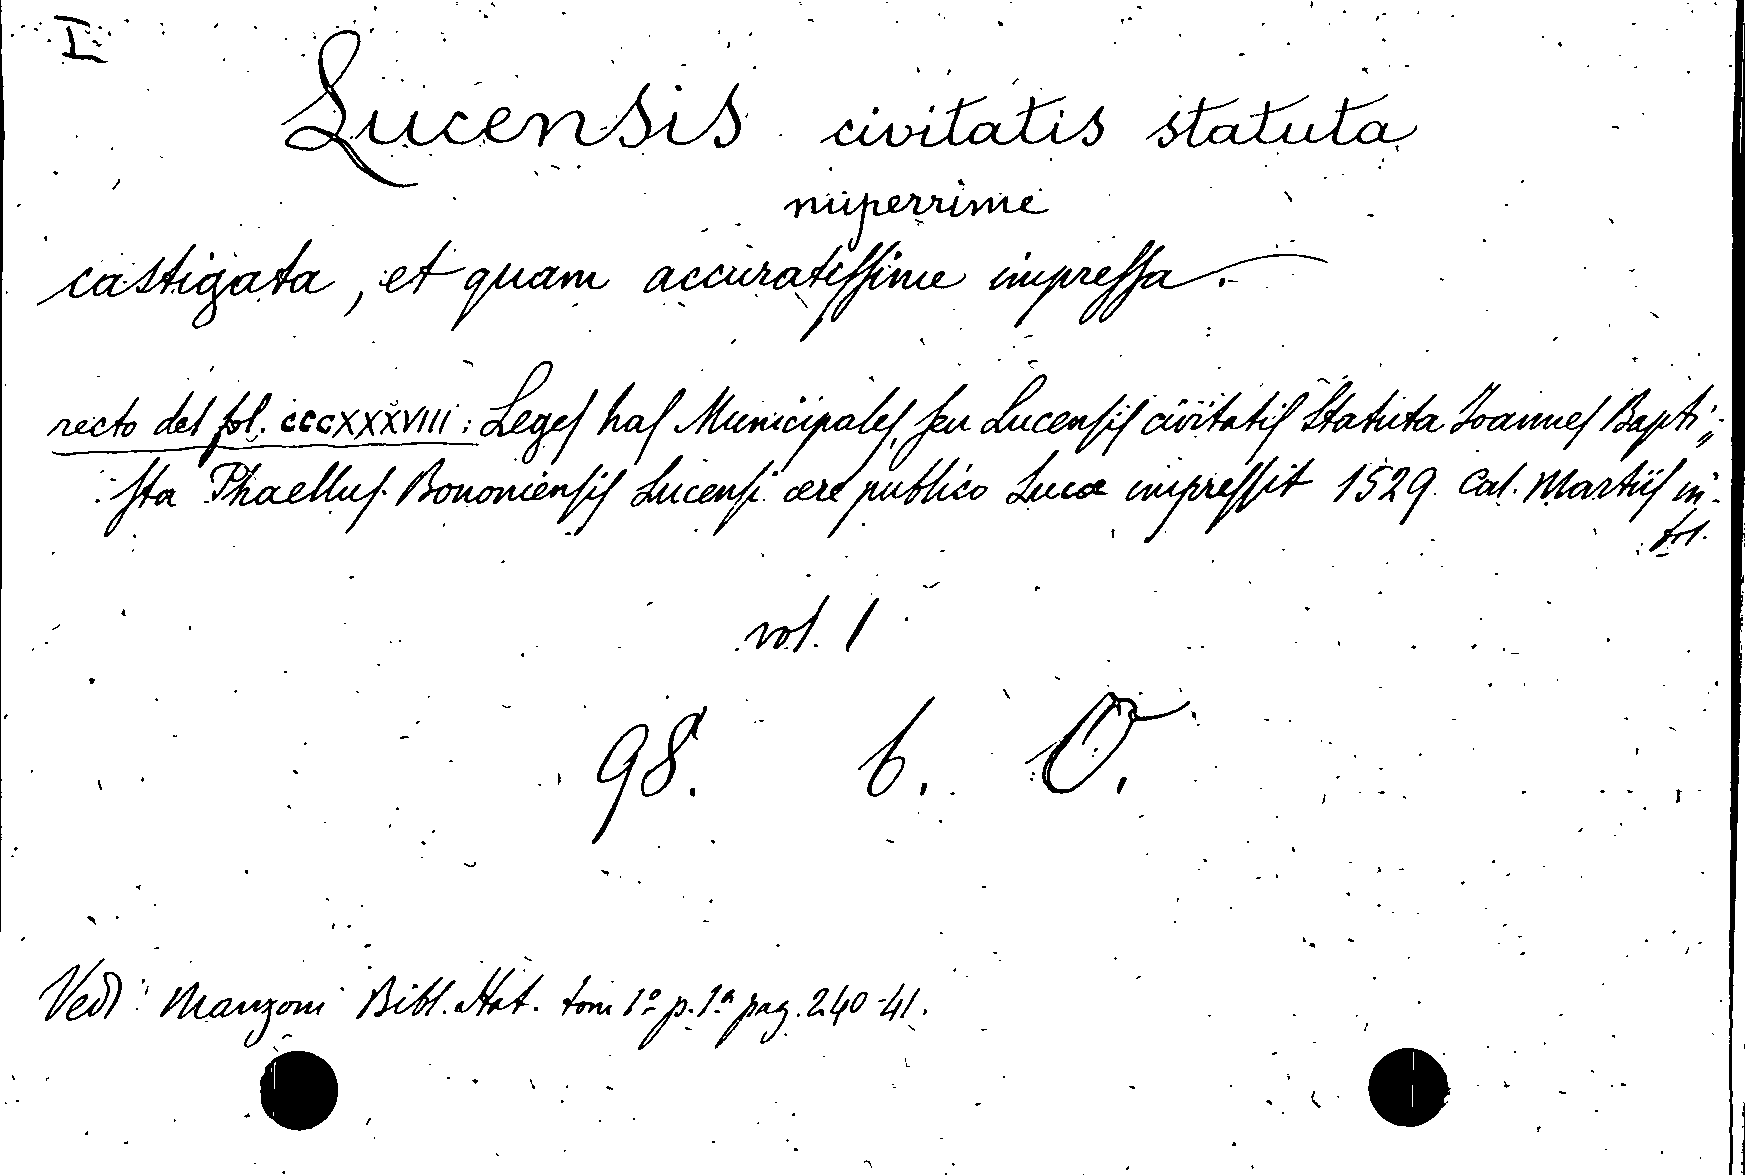 I
Lucensis civitatis statuta
nuperrime
castigata, et quam accuratissime impressa.
recto del fol. CCCXXXVIII: Leges has Municipales, seu Lucensis civitatis Statuta Joannes Bapti„
sta Phaellus Bononiensis Lucensi ære publico Lucæ impressit 1529 Cal. Martiis in-
fol.
vol. 1
98. 6. O.
Vedi Manzoni Bibl. Stat. tom 1º p. 1ª pag. 240-41.